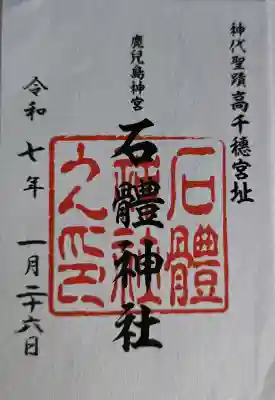 神代聖蹟 高千穂宮址
鹿兒島神宮
石體神社
石體
神社
令和七年 一月二十六日